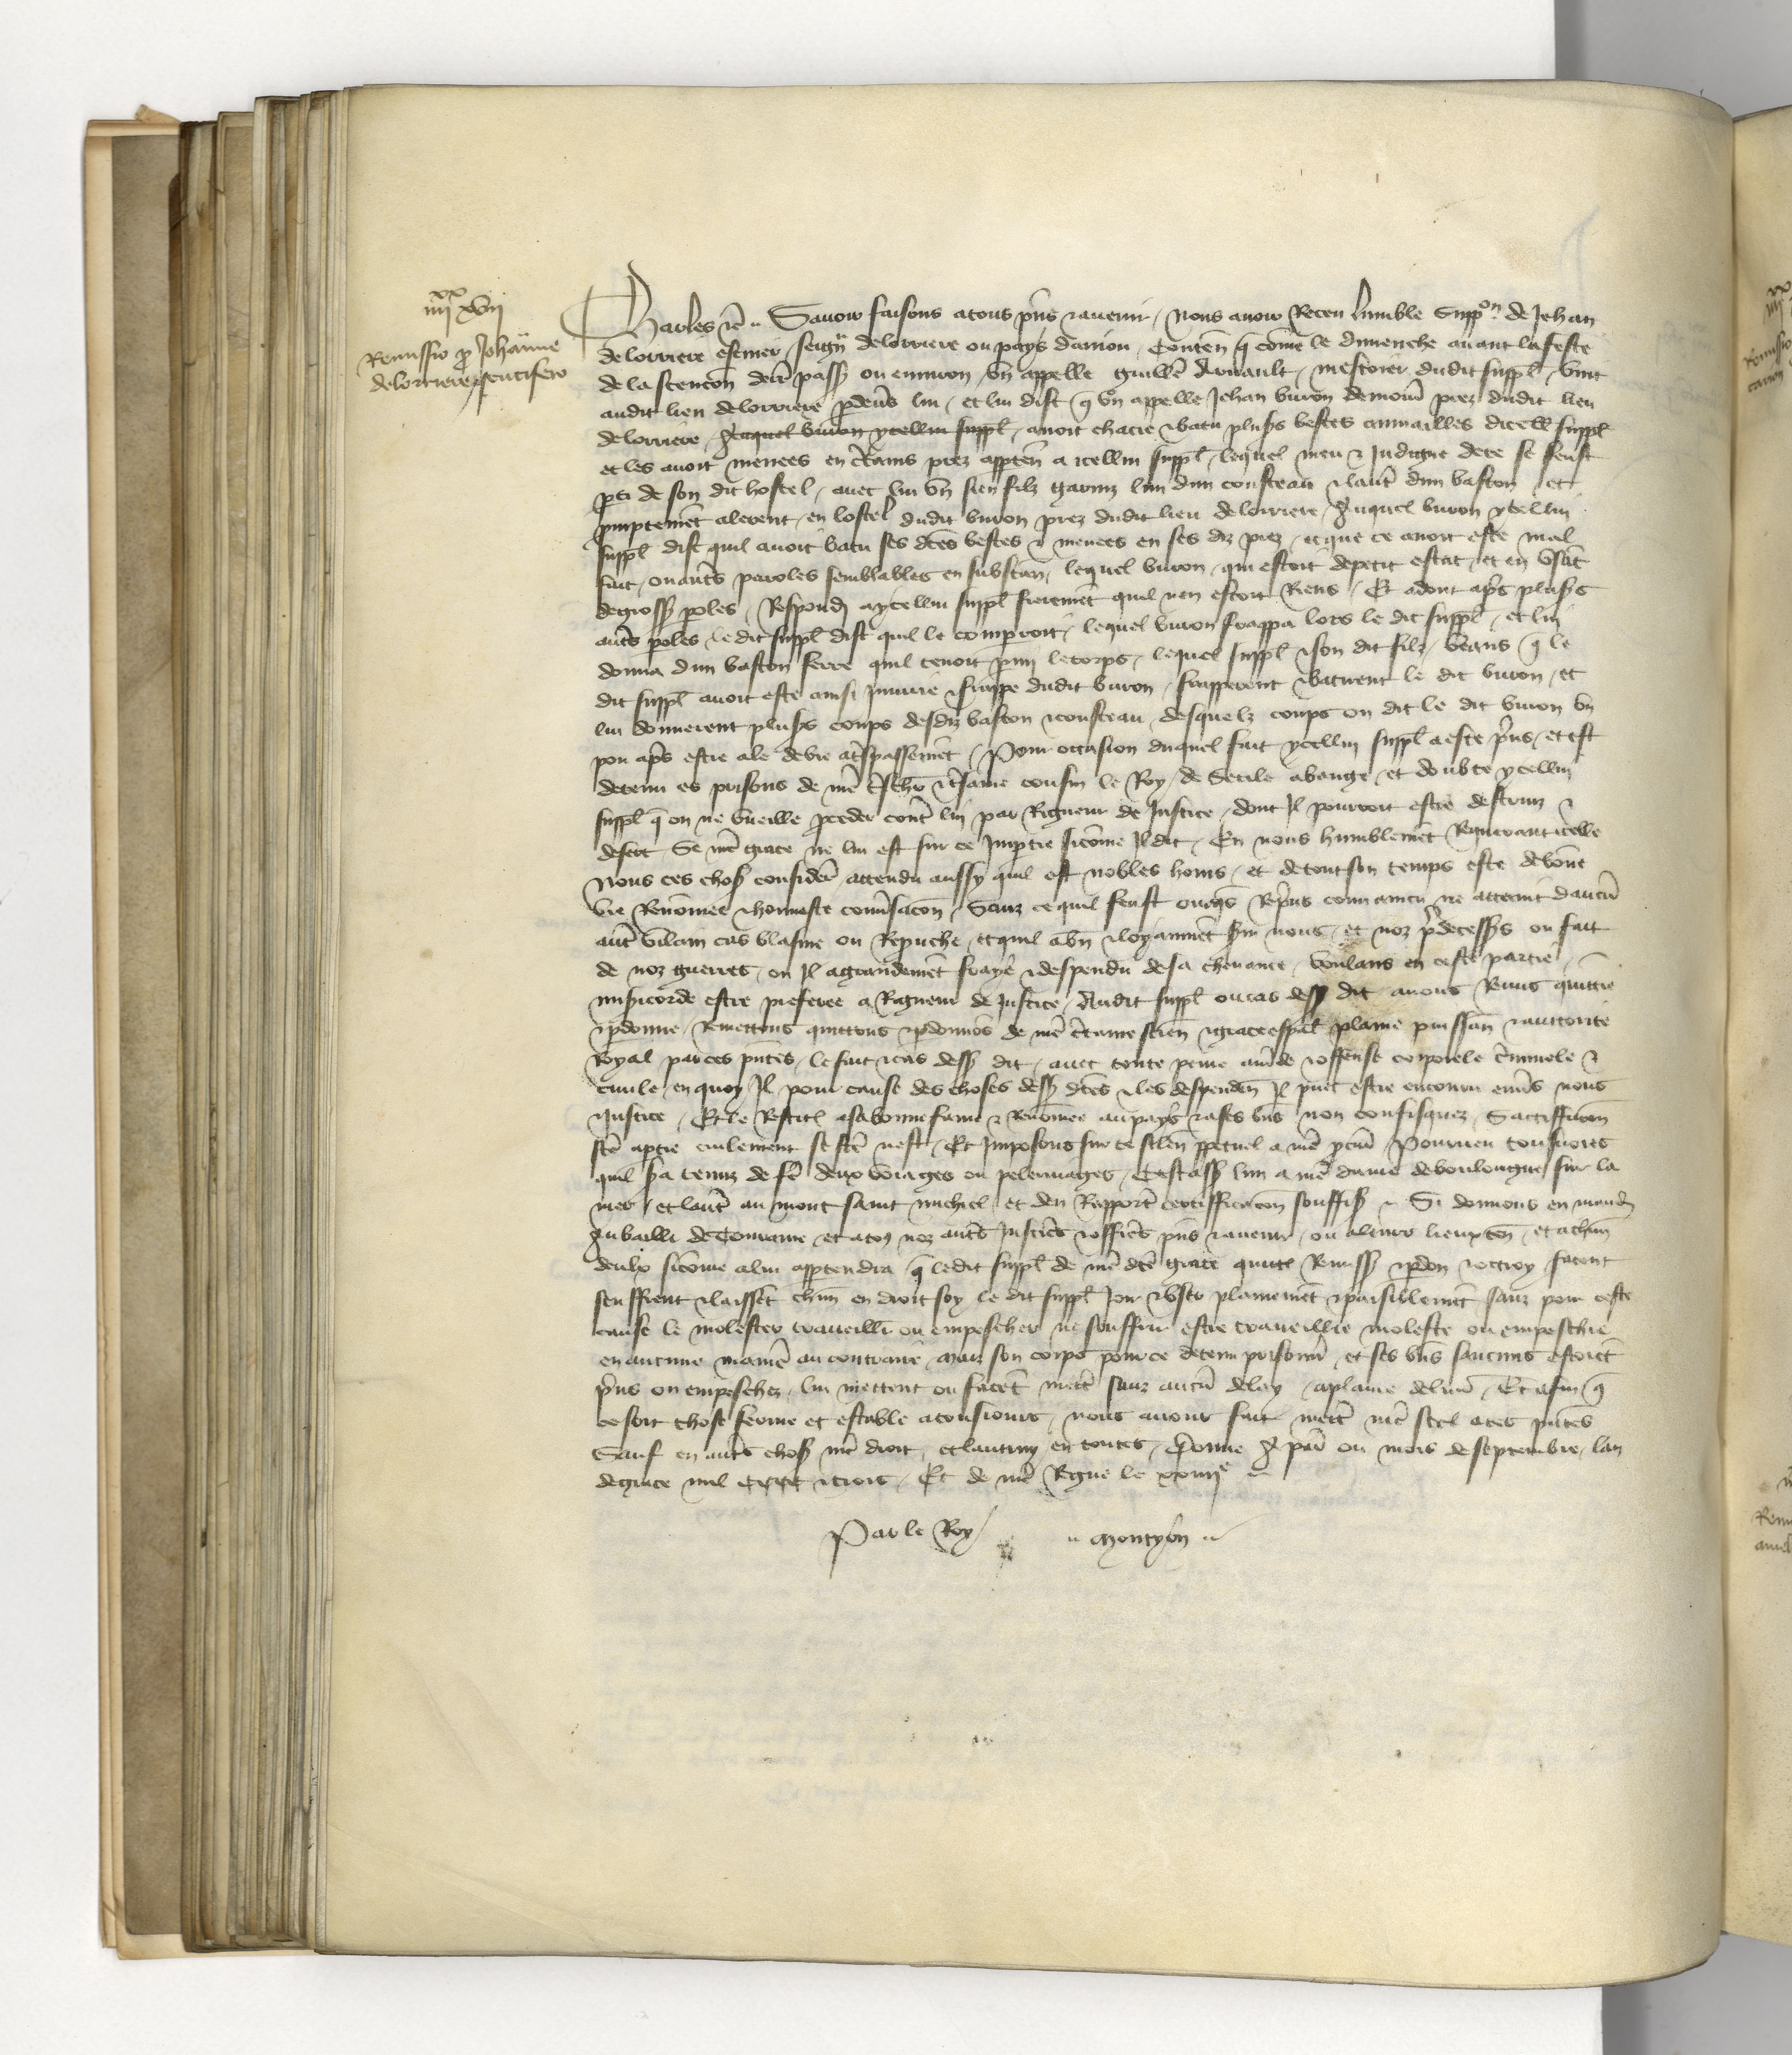 iiii xx xvii
Remissio pro Johanne
de Lorriere scutifero
Charles etc. Savoir faisons a tous pñs et avenir, nous avoir Receu lumble Suppon de Jehan
de Lorriere escuier, seignr de Lorriere ou pays danjou, Conten q come le dimenche avant la feste
de lascencon derr pass ou environ, un appelle Guille Arnault, mestoier dudit suppl, vint
audit lieu de Lorriere pdevs lui, et lui dist q un appelle Jehan Buron demour prez dudit lieu
de Lorriere, auquel buron ycellui suppl, avoit chacie et batu plusrs bestes aumailles dicell suppl
et les avoit menees en crtains prez appten a icellui suppl, lequel meu et Indigne de ce se feust
pti de son dit hostel, avec lui un sien filz garniz lun dun cousteau et lautr dun baston et
pmptemēt alerent en lostel dudit buron prez dudit lieu de Lorriere, Auquel buron ycellui
suppl dist quil avoit batu ses dtes bestes et menees en ses diz prez, et que ce avoit este mal
fait, ou autrs paroles semblables en substan, lequel buron, qui estoit de petit estat, et en usāt
de grosss poles, Respondi a ycellui suppl fierement quil nen estoit Riens, Et adont aprs plusrs
autrs poles, ledit suppl dist quil le comparroit, lequel buron frappa lors le dit suppl, et lui
donna dun baston ferre quil tenoit pmi le corps, lequel suppl et son dit filz, veans q le
dit suppl avoit este ainsi Injurie et frappe dudit buron, frapperent et batirent le dit buron, et
lui donnerent plusrs coups desdiz baston et cousteau, desquelz coups on dit le dit buron un
pou aprs estre ale de vie a trspassemēt, Pour occasion duquel fait ycellui suppl a este prins, et est
detenu es prisons de nre trschr et trsame cousin le Roy de Secile a bauge, et doubte ycellui
suppl q on ne vueille pceder contr lui par Rigueur de Justice, dont Il pourroit estre destruiz et
desert, Se nre grace ne lui est sur ce Impartie sicome Il dit, En nous humblemēt Requerant icelle
Nous ces choss considere attendu aussy quil est nobles homs, et de tout son temps este de bone
vie Renōmee et honneste convsacon, Sanz ce quil feust oncqs Reprins convaincu ne attaint daucū
autr vilain cas blasme ou Reprouche, et quil a bn et loyaumēt svi nous, et noz predecesss ou fait
de noz guerres, ou Il a grandemēt fraye et despendu de sa chevance, voulans en ceste partie,
misicorde estre preferee a Rigueur de Justice, Audit suppl ou cas dess dit avons Remis quittie
et pdonne, Remettons quittons et pdonnons de nre crtaine scien et grace espal plaine puissan et auctorite
Royal par ces pntes, le fait et cas dess dit, avec toute peine amēde et offense corporele crminele et
civile, en quoy Il pour cause des choses dess dtes et les despenden Il puet estre encouru envrs nous
et Justice, Et le Restit a sa bonne fame et Renōmee au pays et a ses bns non confisquez, Satisfficacon
fte a ptie civilement se fte nest, Et Imposons sur ce silen ppetuel a nre pcur, Pourveu toutvoies
quil sra tenuz de fe deux voiages ou pelerinages, Cestass lun a nre dame de boulongne sur la
mer, et lautr au mont saint michiel, et den Rapporter certifficacon souffiss, Si donnons en mand
Au bailli de Touraine et a tos noz autrs Justics et officrs pns et avenir, ou a leurs lieuxten, et a chun
deulx sicome a lui apptendra q ledit suppl de nre dte grace quitt Remiss pdon et octroy facent
seuffrent et laissēt chun en droit soy le dit suppl Joir et user plainement et paisiblemēt sanz pour ceste
cause le molester travaillier ou empescher ne souffrir estre travaillie moleste ou empeschie
en aucune maniere au contraire, mais son corps pour ce detenu prisonn, et ses bns saucuns estoiēt
prins ou empeschez, lui mettent ou facēt mettr sanz aucū delay a plaine delivr, Et afin q
ce soit chose ferme et estable a tousiours, nous avons fait mettr nre scel a ces pntes
Sauf en autrs choss nre droit, et lautruy en toutes, Donne A pari ou mois de septembre, lan
de grace mil CCCC et trois, Et de nre Regne le xxiiije
Par le Roy
Montyon